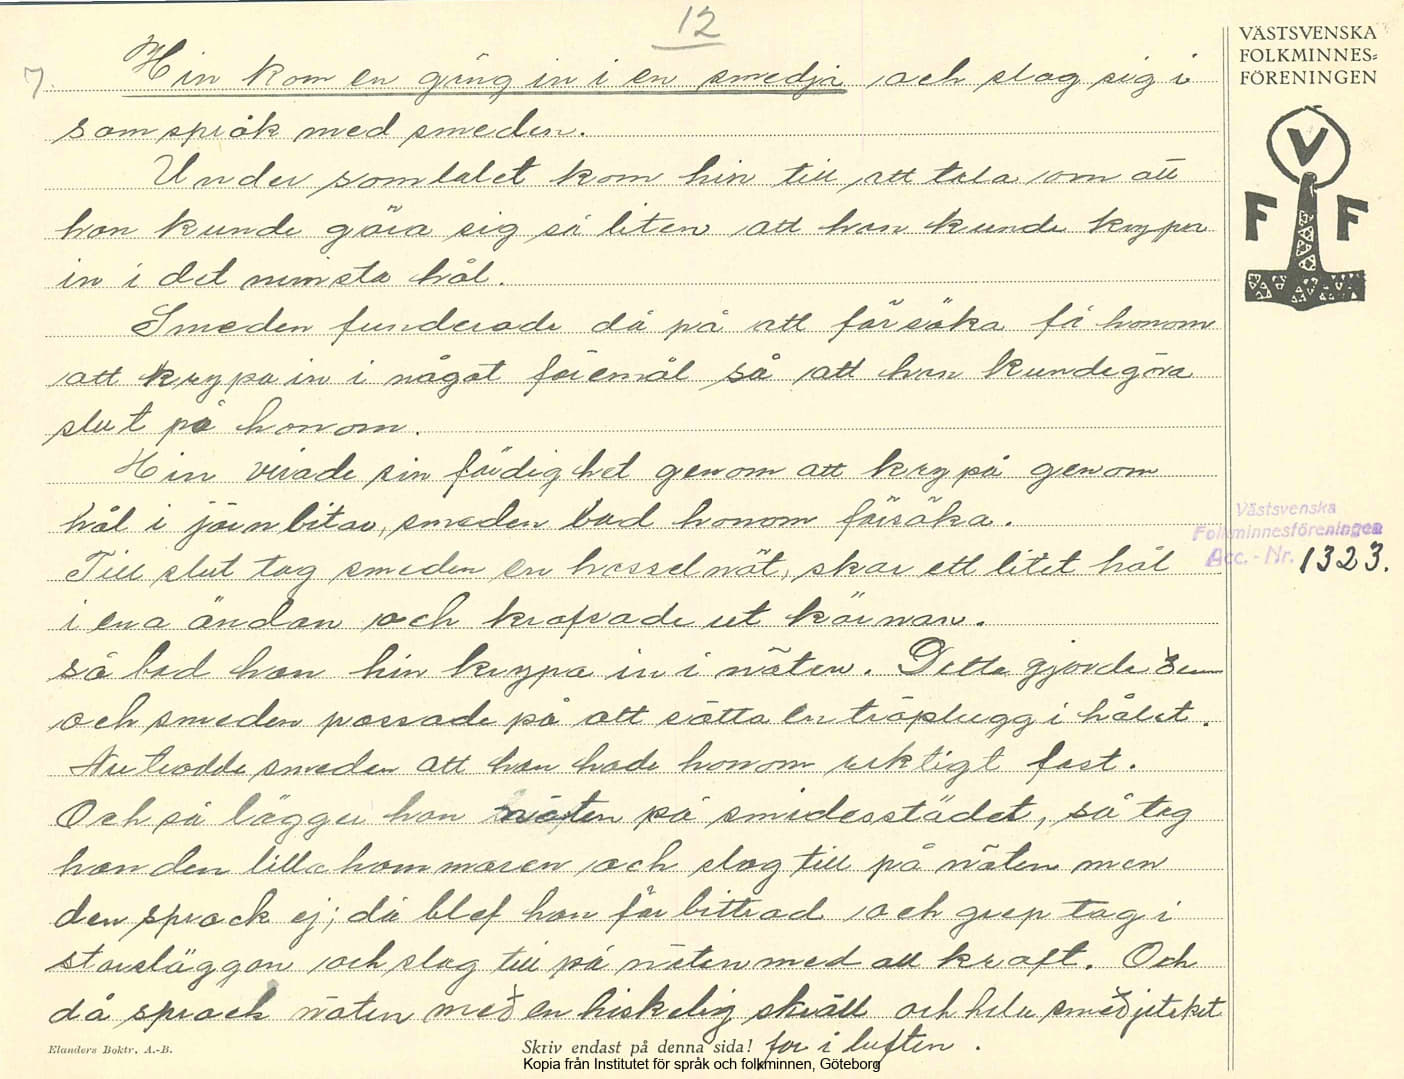 12
VÄSTSVENSKA
FOLKMINNES=
FÖRENINGEN
V
F F
7. Hin kom en gång in i en smedja och slog sig i
samspråk med smeden.
Under samtalet kom hin till att tala om att
han kunde göra sig så liten att han kunde krypa
in i det minsta hål.
Smeden funderade då på att försöka få honom
att krypa in i något föremål så att han kunde göra
slut på honom.
Hin visade sin färdighet genom att krypa genom
hål i järnbitar, smeden bad honom försöka.
Till slut tog smeden en hasselnöt, skar ett litet hål
i ena ändan och krafsade ut kärnan.
Så bad han hin krypa in i nöten. Detta gjorde
och smeden passade på att sätta en träplugg i hålet.
Nu trodde smeden att han hade honom riktigt fast.
Och så lägger han nöten på smidesstädet, så tog
han den lilla hammaren och slog till på nöten men
den sprack ej; då blef han förbittrad och grep tag i
storsläggan och slog till på nöten med all kraft. Och
då sprack nöten med en hiskelig skräll och hela smedjetaket
for i luften.
Västsvenska
Folkminnesföreningen
Acc.-Nr. 1323.
Elanders Boktr. A.-B.
Skriv endast på denna sida!
Kopia från Institutet för språk och folkminnen, Göteborg